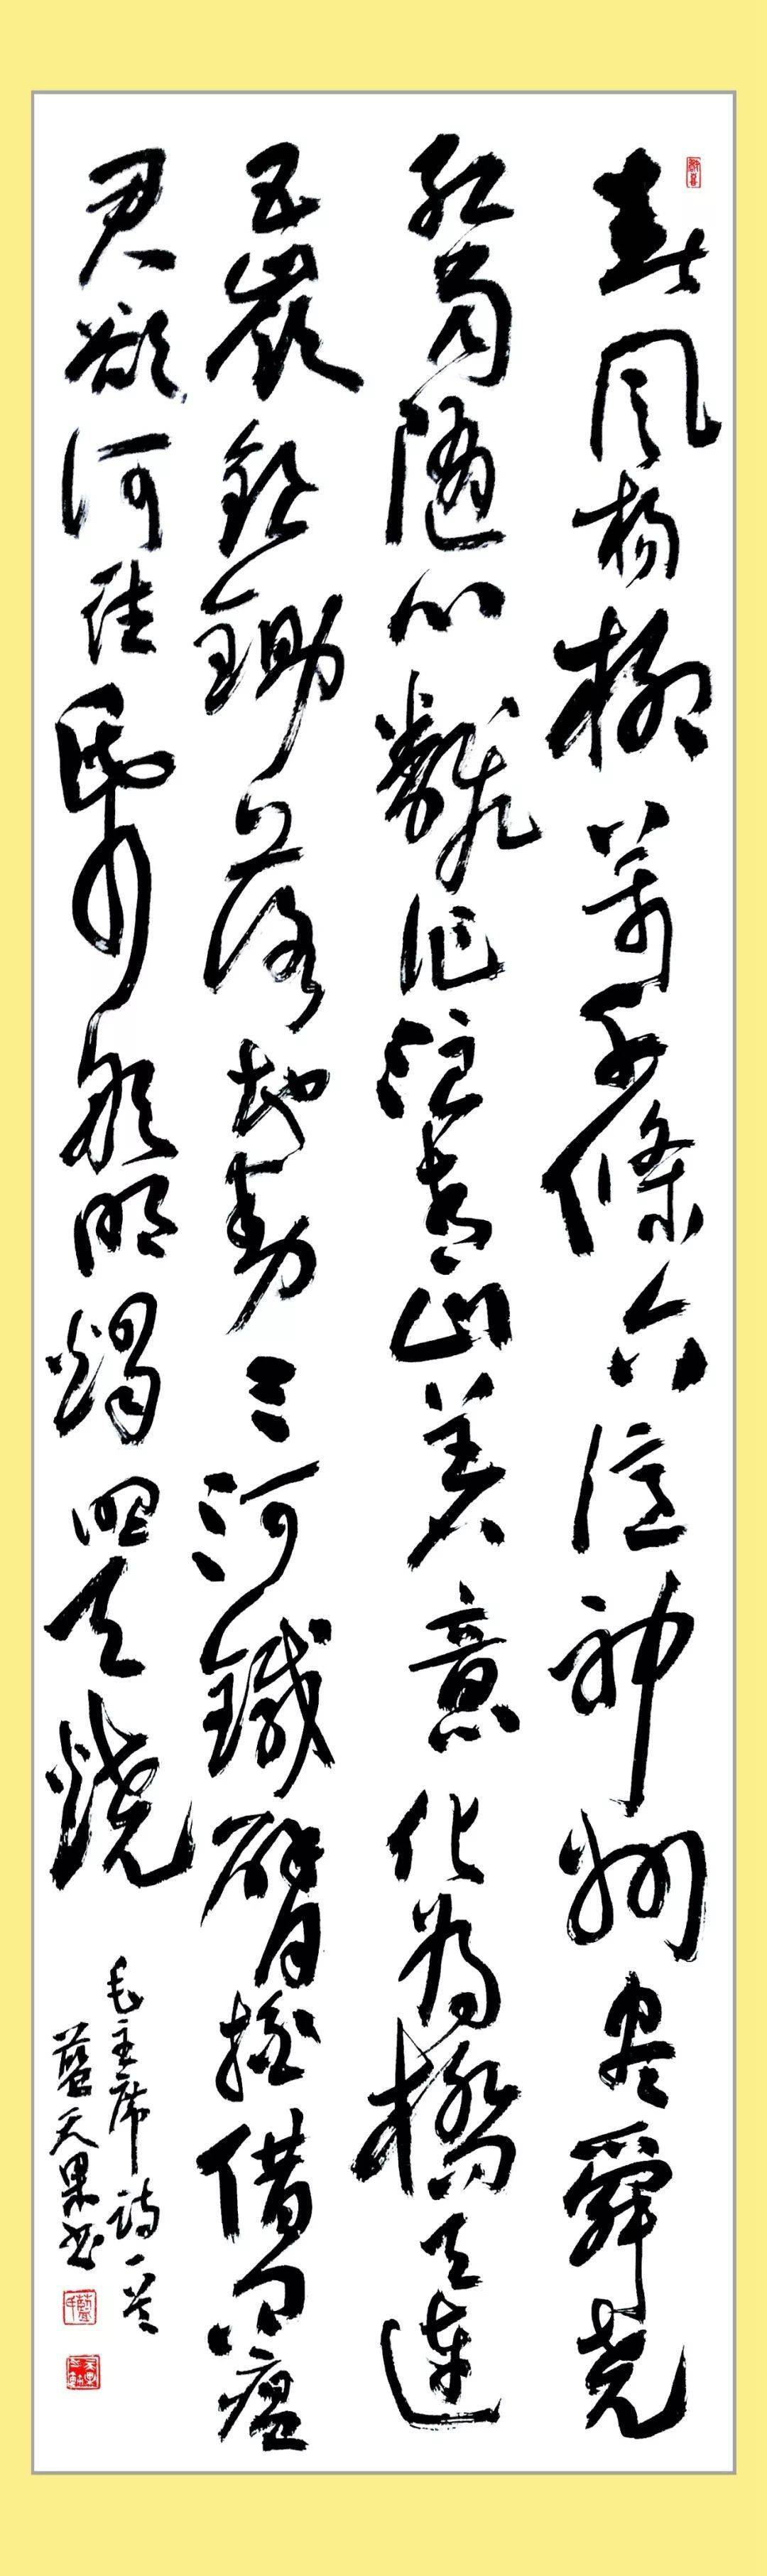 春風楊柳萬千條六億神州盡舜堯
紅雨随心翻作浪青山着意化為橋天連
五嶺銀鋤落地動三河鐵臂摇借问瘟
君欲何往紙船明燭照天燒
毛主席詩一首
藍天果书